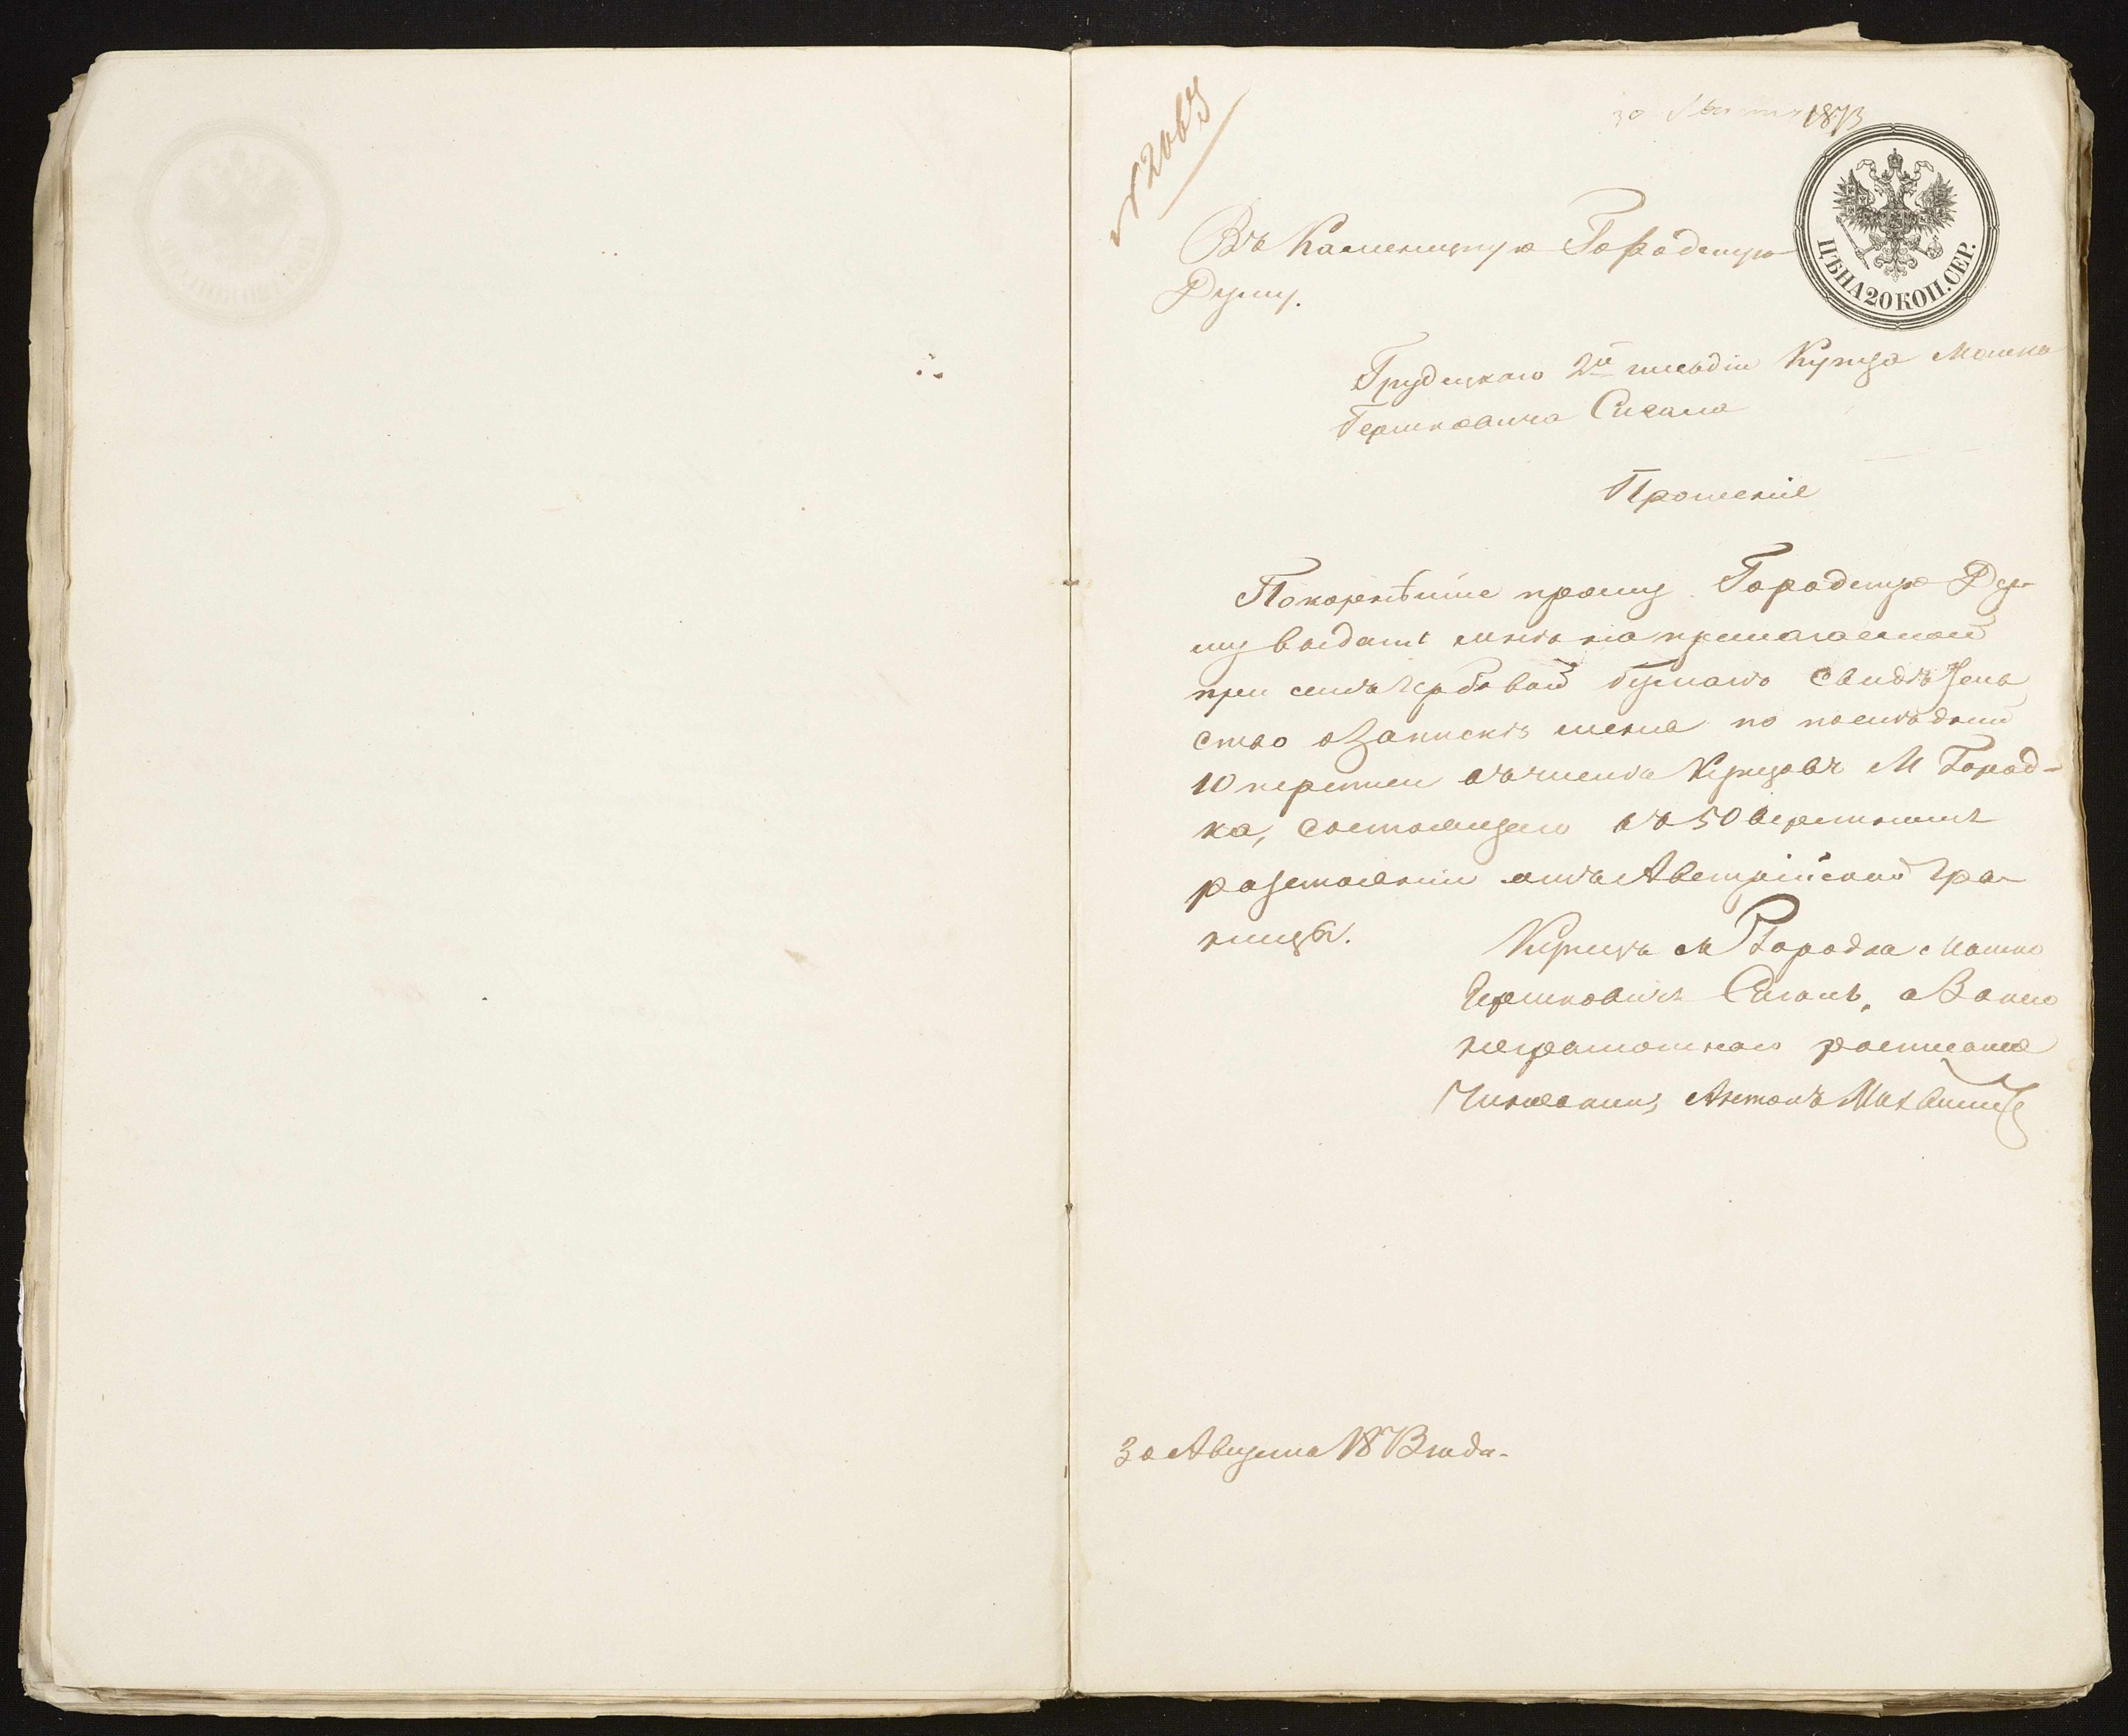 30 Августа 1873
№ 2067
ЦѢНА 20 КОП. СЕР.
Въ Каменецкую Городскую
Думу.
2й гильдіи Купца Мошка
Гершковича Сигала
Прошеніе
Покорнѣйше прошу Городскую Ду-
му выдать мнѣ на прилагаемой
при семъ гербовой бумагѣ свидѣтель
ство о запискѣ меня по послѣдней
10 переписи въ число Купцовъ М Город-
ка, состоящего въ 50 верстномъ
разстояніи отъ Австрійской гра-
ницы.
Купецъ М Городка Мошко
Гершковичъ Сигалъ, а за него
неграмотнаго росписался
Антонъ
30 Августа 1873 года.